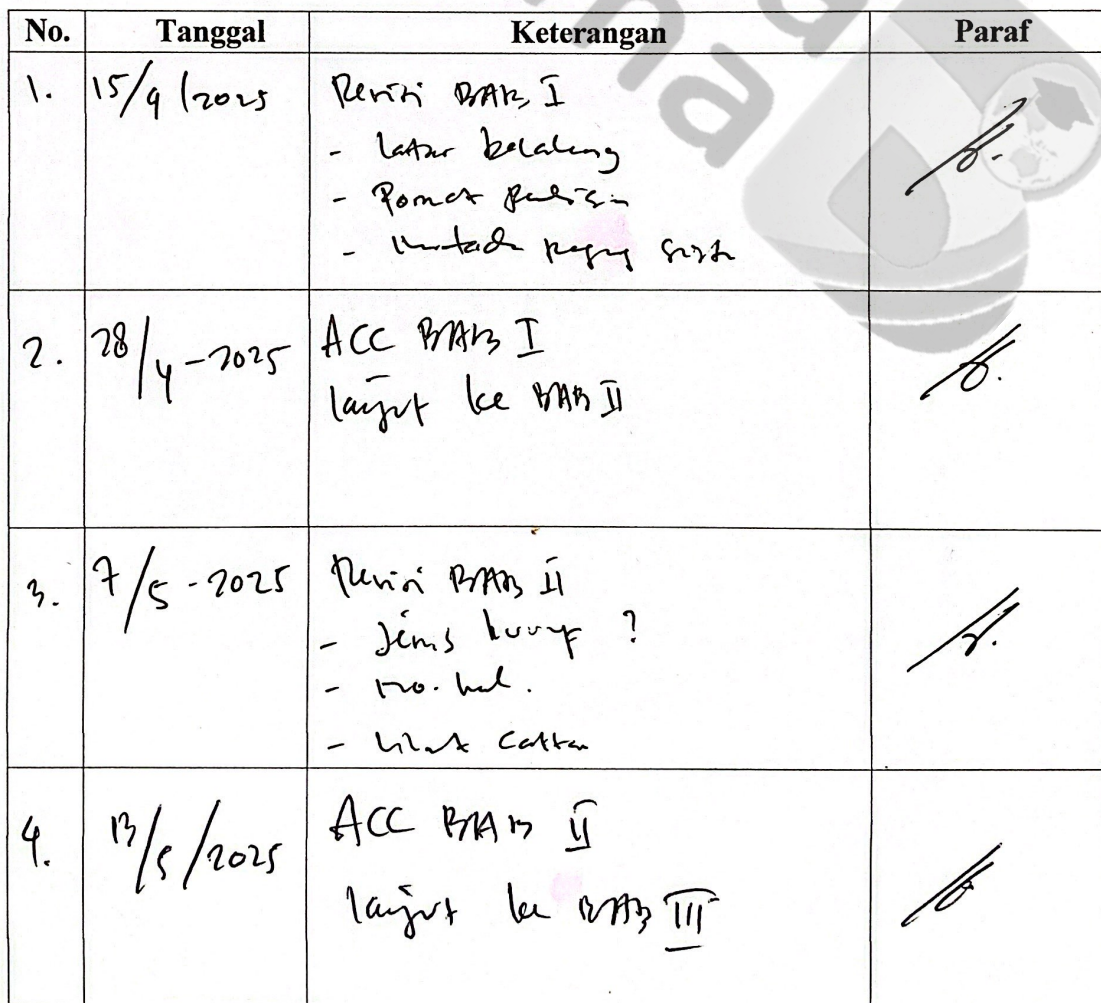 No. Tanggal Keterangan Paraf
1. 15/4/2025 Revisi BAB I
- Latar belakang
- Format penulisan
-
2. 28/4-2025 ACC BAB I
lanjut ke BAB II
3. 7/5-2025 Revisi BAB II
- Jenis huruf ?
- no. hal.
- Lihat catatan
4. 13/5/2025 ACC BAB II
lanjut ke BAB III